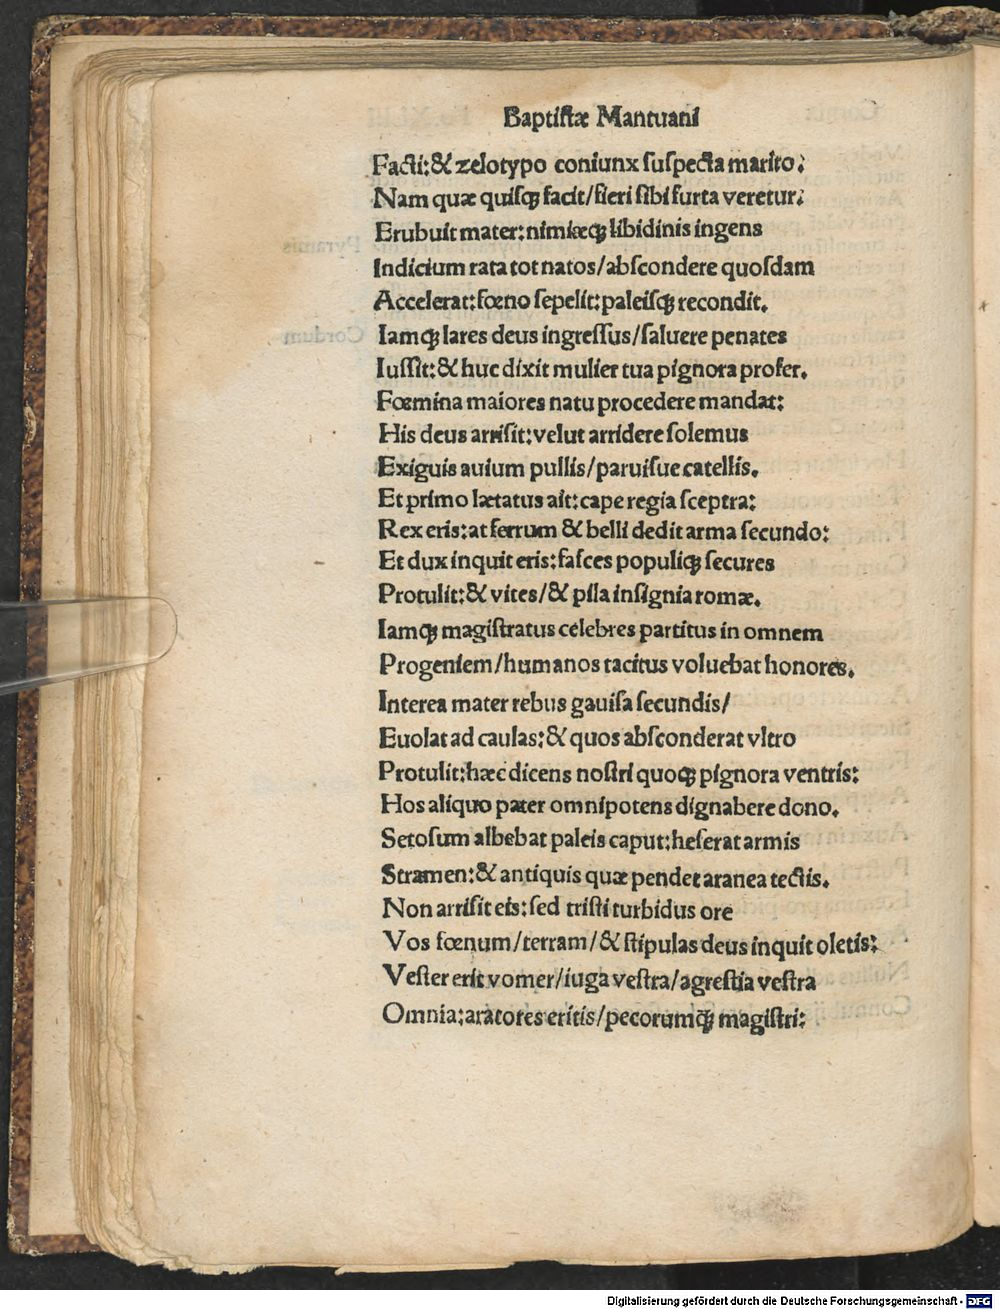 Baptiſtæ Mantuani
Facti:& zelotypo coniunx ſuſpecta marito:
Nam quæ quiſqꝫ facit/fieri ſibi furta veretur:
Erubuit mater:nimiæqꝫ libidinis ingens
Indicium rata tot natos/abſcondere quoſdam
Accelerat:fœno ſepelit:paleiſqꝫ recondit.
Iamqꝫ lares deus ingreſſus/ſaluere penates
Iuſſit:& huc dixit mulier tua pignora profer.
Fœmina maiores natu procedere mandat:
His deus arriſit:velut arridere ſolemus
Exiguis auium pullis/paruiſue catellis.
Et primo lætatus ait:cape regia ſceptra:
Rex eris:at ferrum & belli dedit arma ſecundo:
Et dux inquit eris:faſces populiqꝫ ſecures
Protulit:& vites/& pila inſignia romæ.
Iamqꝫ magiſtratus celebres partitus in omnem
Progeniem/humanos tacitus voluebat honores.
Interea mater rebus gauiſa ſecundis/
Euolat ad caulas:& quos abſconderat vltro
Protulit:hæc dicens noſtri quoqꝫ pignora ventris:
Hos aliquo pater omnipotens dignabere dono.
Setoſum albebat paleis caput:heſerat armis
Stramen:& antiquis quæ pendet aranea tectis.
Non arriſit eis:ſed triſti turbidus ore
Vos fœnum/terram/& ſtipulas deus inquit oletis:
Veſter erit vomer/iuga veſtra/agreſtia veſtra
Omnia:aratores eritis/pecorumqꝫ magiſtri:
Pyramis
Cordum
Digitalisierung gefördert durch die Deutsche Forschungsgemeinschaft - DFG